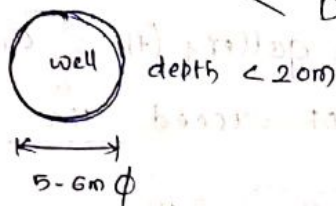 well
depth < 20m
5-6m ϕ